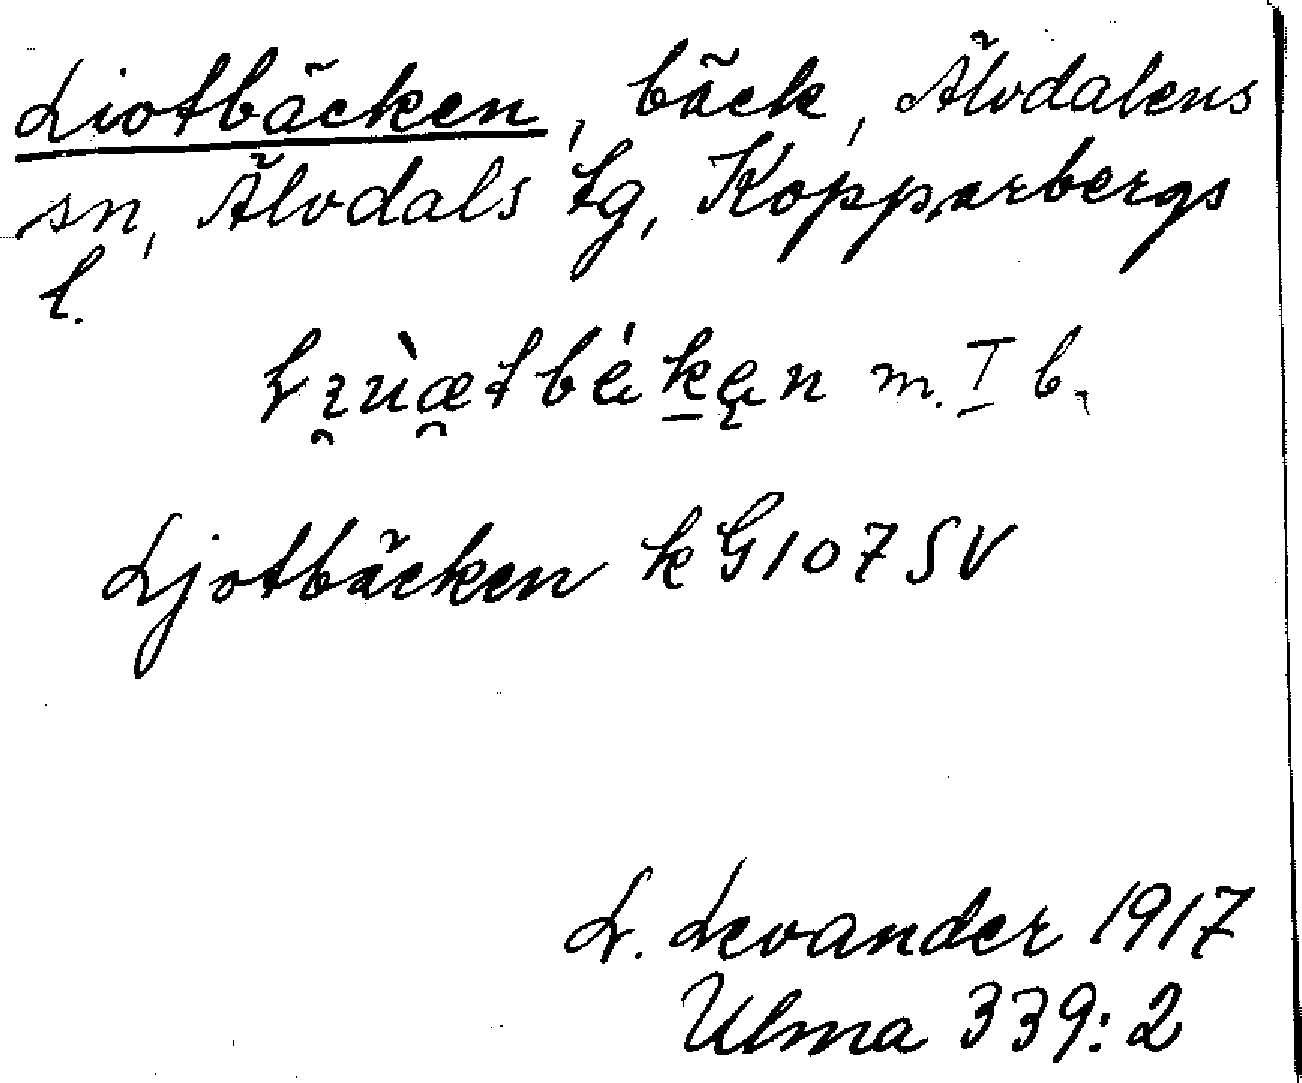 Liotbäcken, bäck, Älvdalens
sn, Älvdals tg, Kopparbergs
l.
m. I b.
Ljotbäcken kG107SV
L. Levander 1917
Ulma 339:2